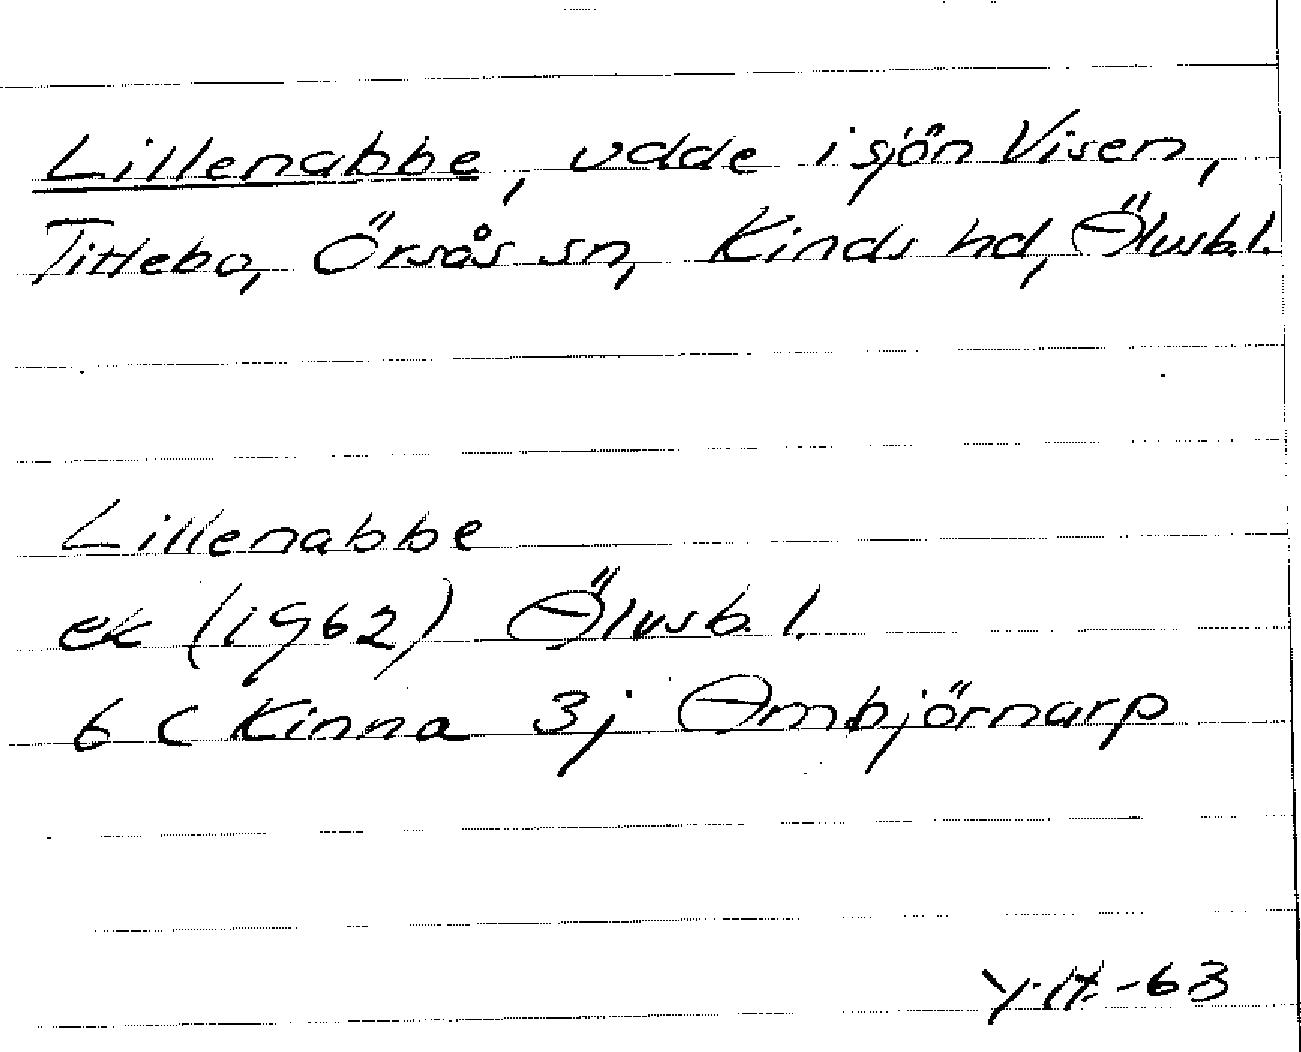 Lillenabbe, udde i sjön Visen,
Tittebo, Örsås sn, Kinds hd, Älvsb.l.
Lillenabbe
ek (1962) Älvsb. l.
6 C Kinna 3j Ambjörnarp
-63